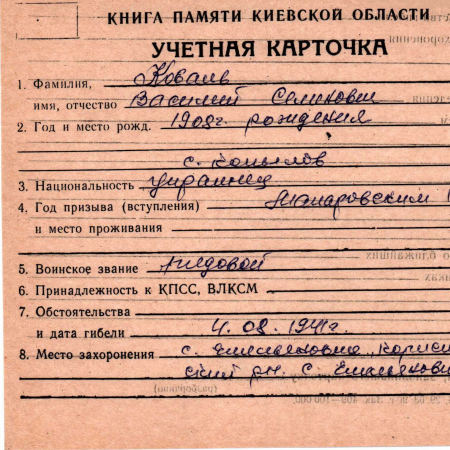 КНИГА ПАМЯТИ КИЕВСКОЙ ОБЛАСТИ
УЧЕТНАЯ КАРТОЧКА
1. Фамилия, Коваль
имя, отчество Василий Семенович
2. Год и место рожд. 1909г. рождения
с. Копылов
3. Национальность украинец
4. Год призыва (вступления) Макаровским
и место проживания
5. Воинское звание рядовой
6. Принадлежность к КПСС, ВЛКСМ
7. Обстоятельства
и дата гибели 4.08.1941г.
8. Место захоронения с.
ский рн. с.